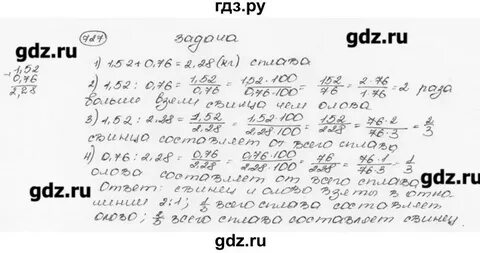 гдз.ру
727 задача
gdz.ru gdz.ru
1,52
+ 0,76
2,28
1) 1,52+0,76=2,28 (кг) сплава
2) 1,52 : 0,76 = 1,52/0,76 = 152·100/0,76·100 = 152/76 = 2·76/1·76 = 2 раза
больше взяли свинца чем олова.
3) 1,52 : 2,28 = 1,52/2,28 = 1,52·100/2,28·100 = 152/228 = 76·2/76·3 = 2/3
свинца составляет от всего сплава
gdz.ru gdz.ru
4) 0,76 : 2,28 = 0,76/2,28 = 0,76·100/2,28·100 = 76/228 = 76·1/76·3 = 1/3
олова составляет от всего сплава
Ответ: свинец и олово взяты в отно-
шении 2:1; 1/3 всего сплава составляет
олово; 2/3 всего сплава составляет свинец.
gdz.ru gdz.ru